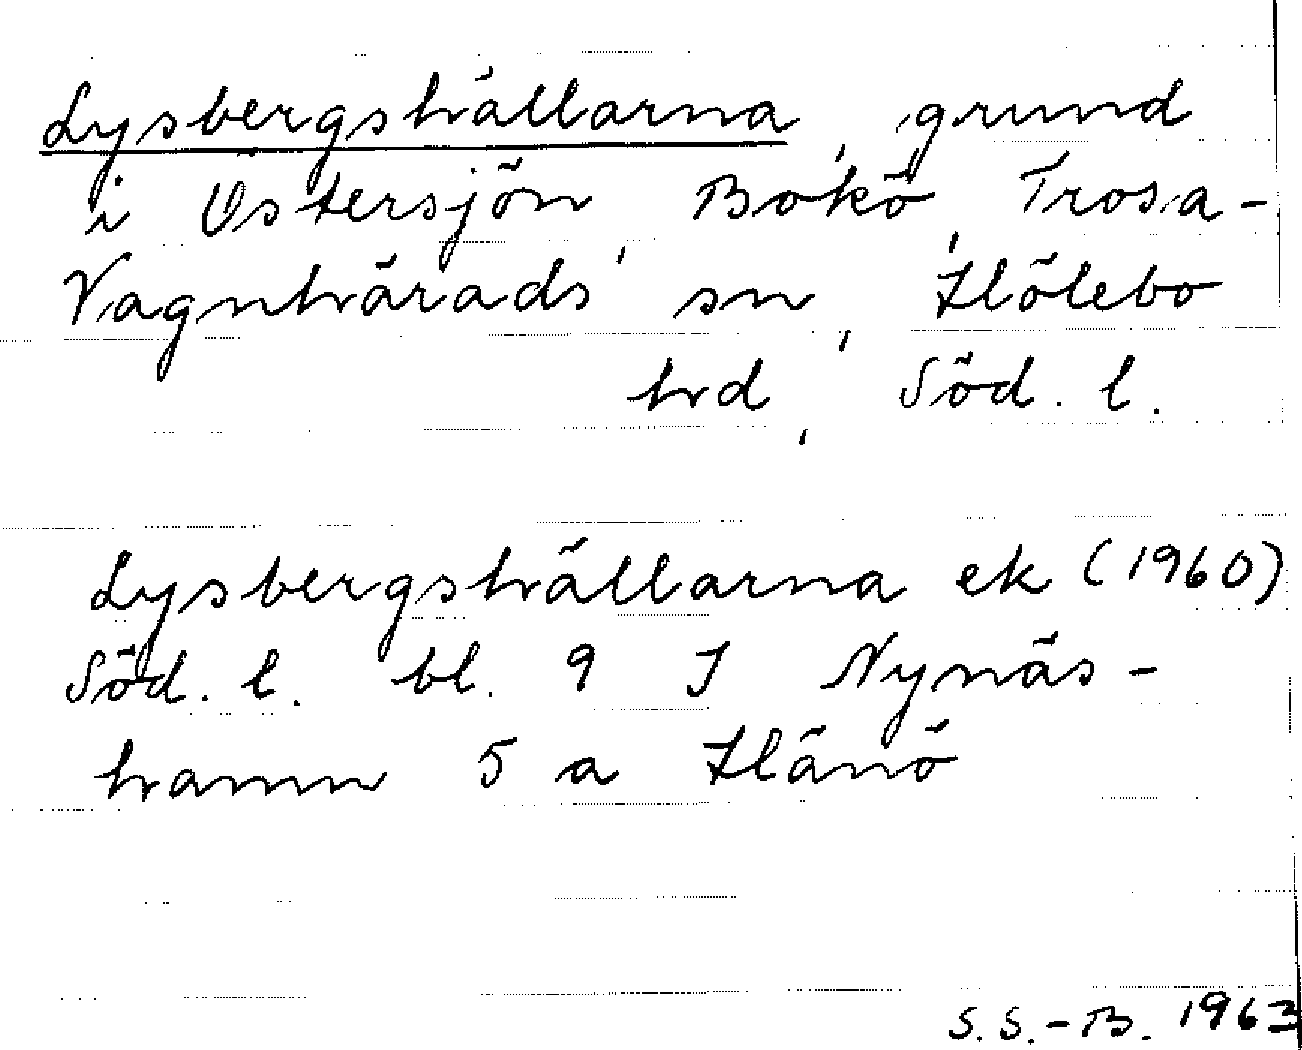 Lysbergshällarna, grund
i Östersjön, Bokö, Trosa-
Vagnhärads sn, Hölebo
hrd, Söd. l.
Lysbergshällarna ek (1960)
Söd. l. bl. 9 I Nynäs-
hamn 5 a Hånö
S. S.-B. 1963